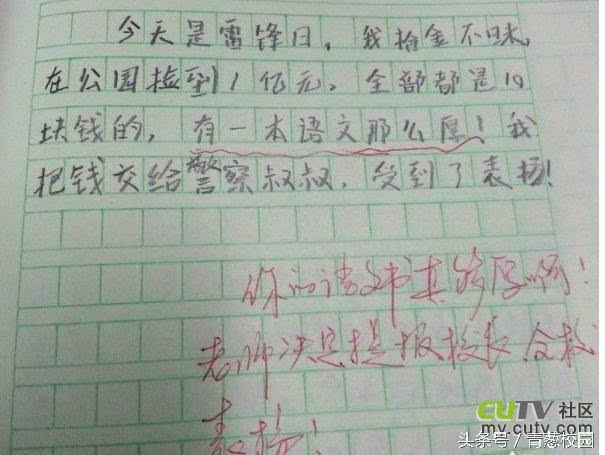 今天是雷锋日，我拾金不昧，
在公园捡到1亿元。全部都是10
块钱的，有一本语文那么厚！我
把钱交给警察叔叔，受到了表扬！
你的语文书真够厚啊！
老师决定提报校长全校
表扬！
CUTV社区
mv.cutv.com
头条号/青葱校园